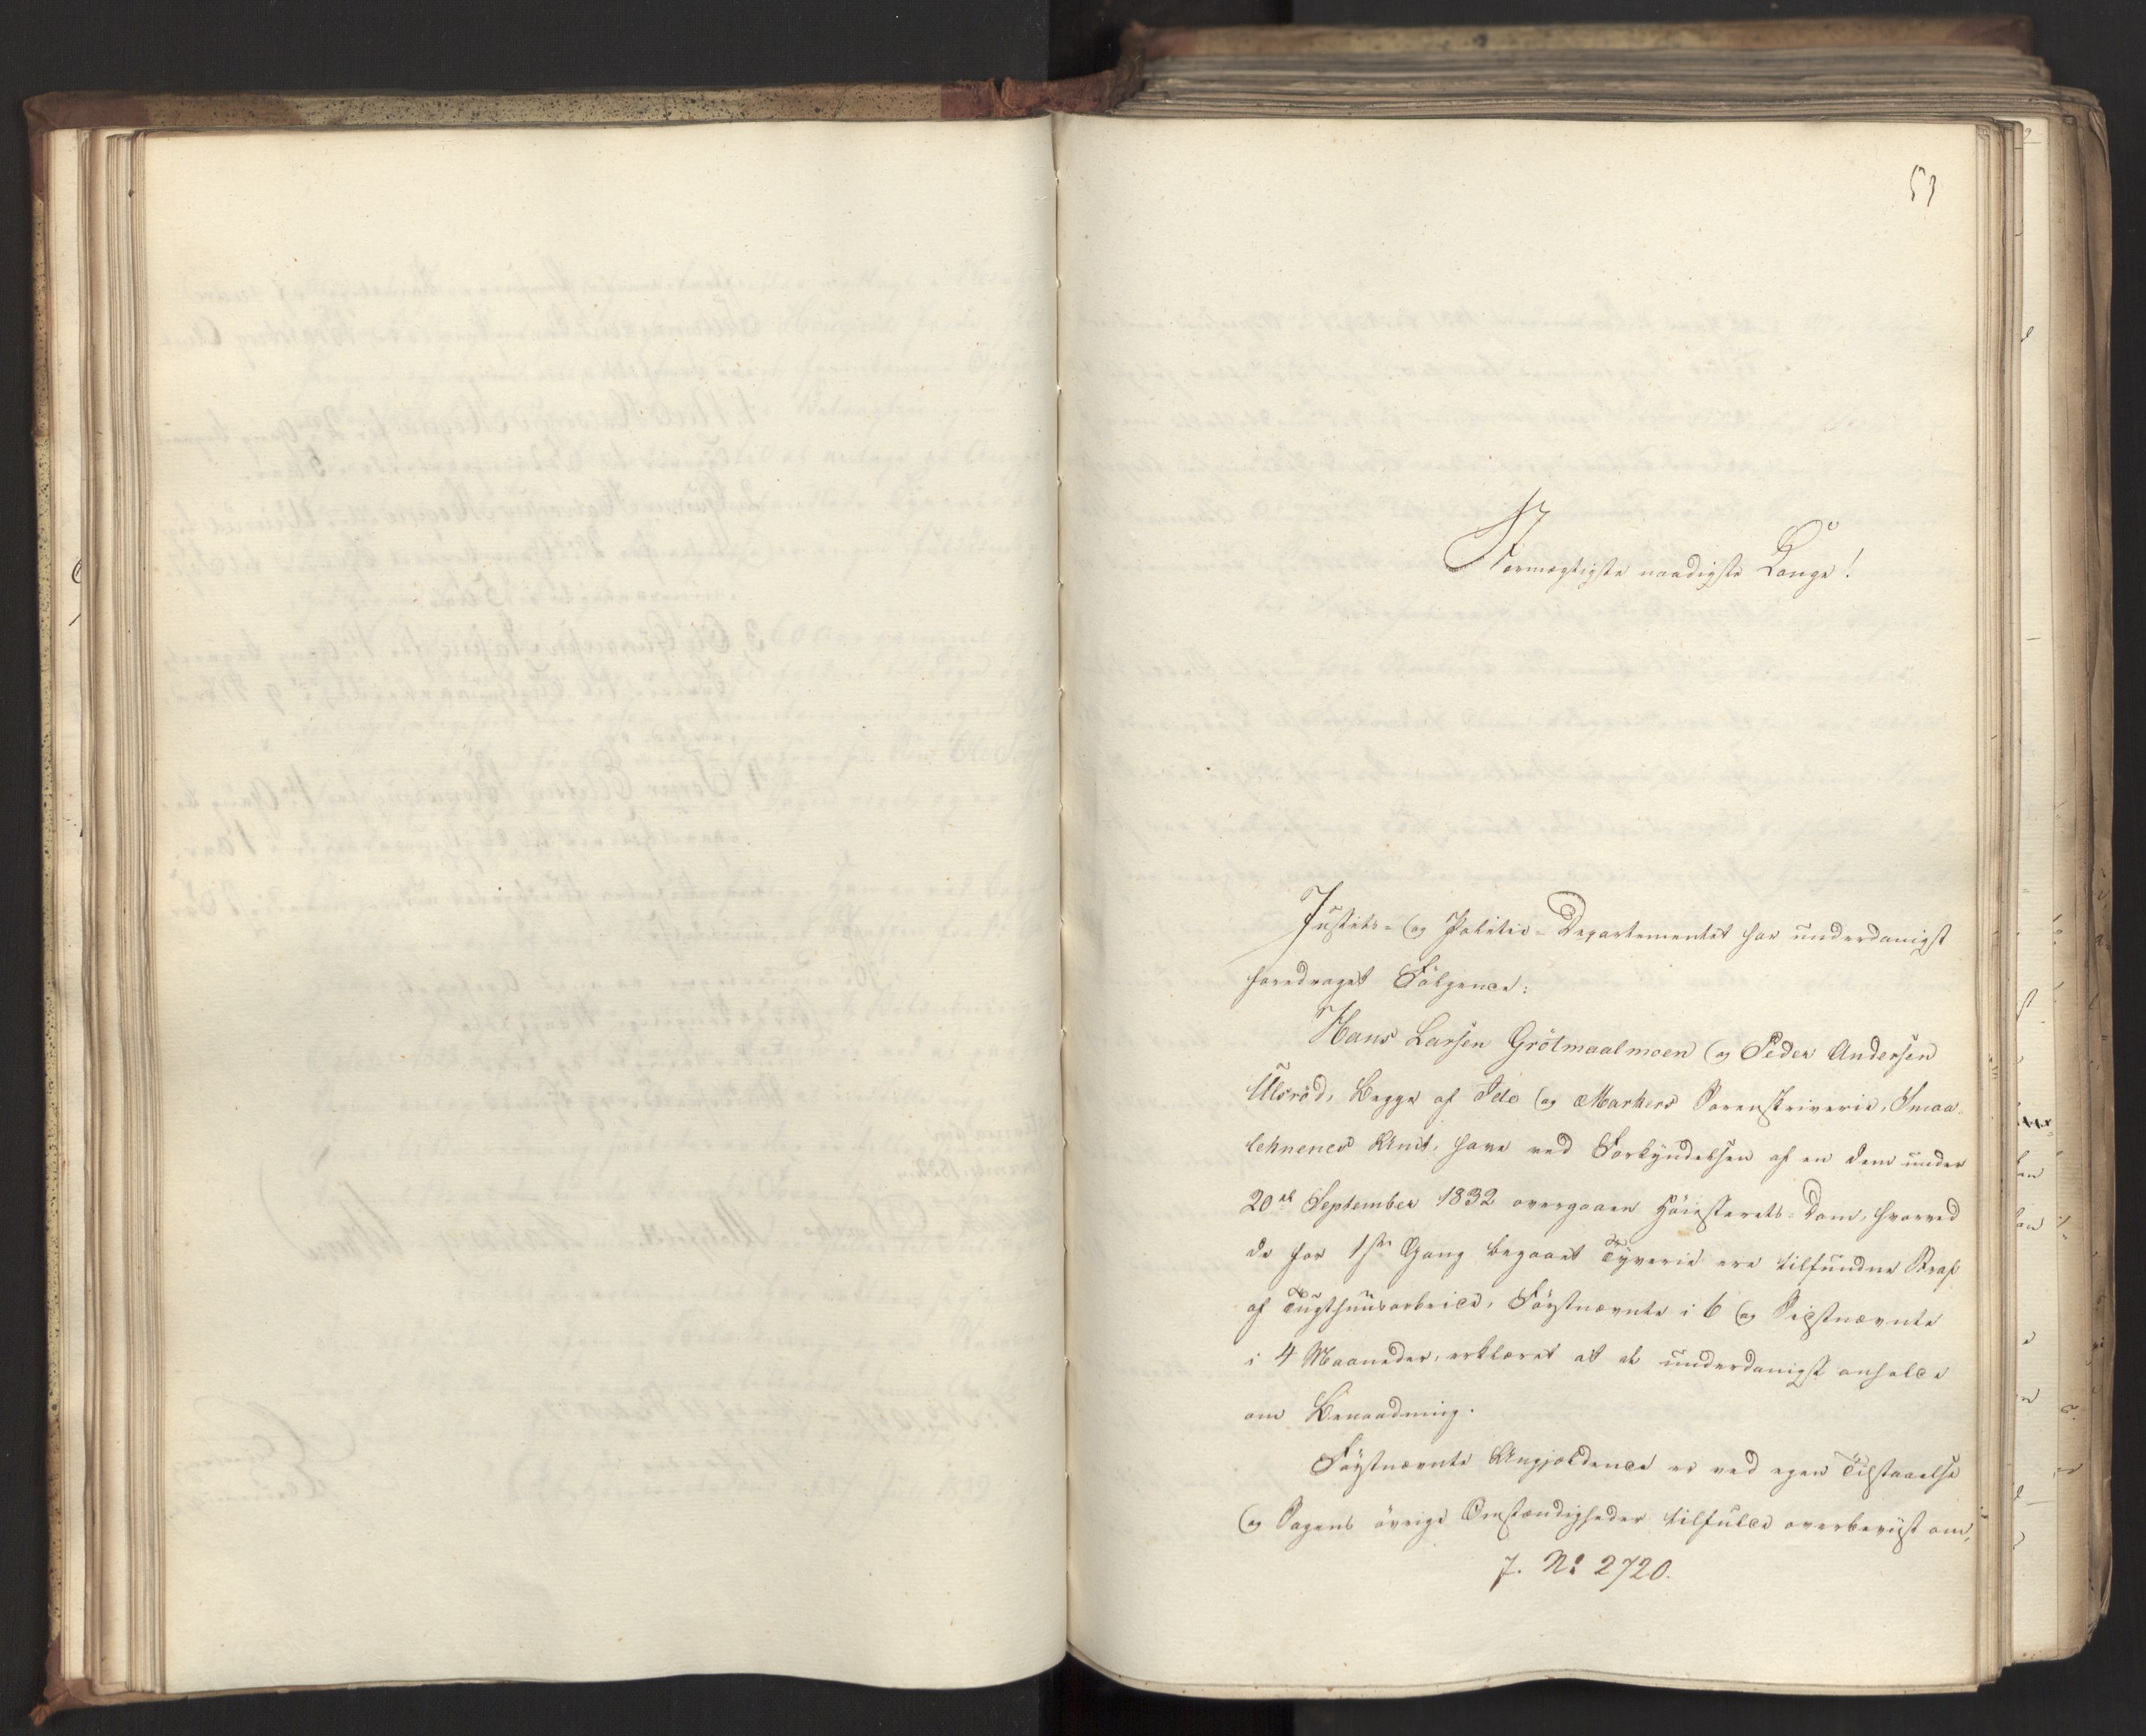 53
Stormægtigste naadigste Konge!
Justits- og Politie-Departementet har underdanigst
foredraget Følgende:
Hans Larsen Grötmaalmoen og Peder Andersen
Ulsröd, begge af Ide og Markers Sorenskriverie, Smaa-
lehnenes Amt, have ved Forkyndelsen af en dem under
20de September 1832 overgaaen Höiesterets-Dom, hvorved
de for 1ste Gang begaaet Tyverie ere tilfundne Straf
af Tugthuusarbeide, Förstnævnte i 6 og Sidstnævnte
i 4 Maaneder, erklæret at de underdanigst ansøgte
om Benaadning.
Förstnævnte Angjeldende er ved egen Tilstaaelse
og Sagens övrige Omstændigheder tilfulde overbeviist om,
J. No 2720.